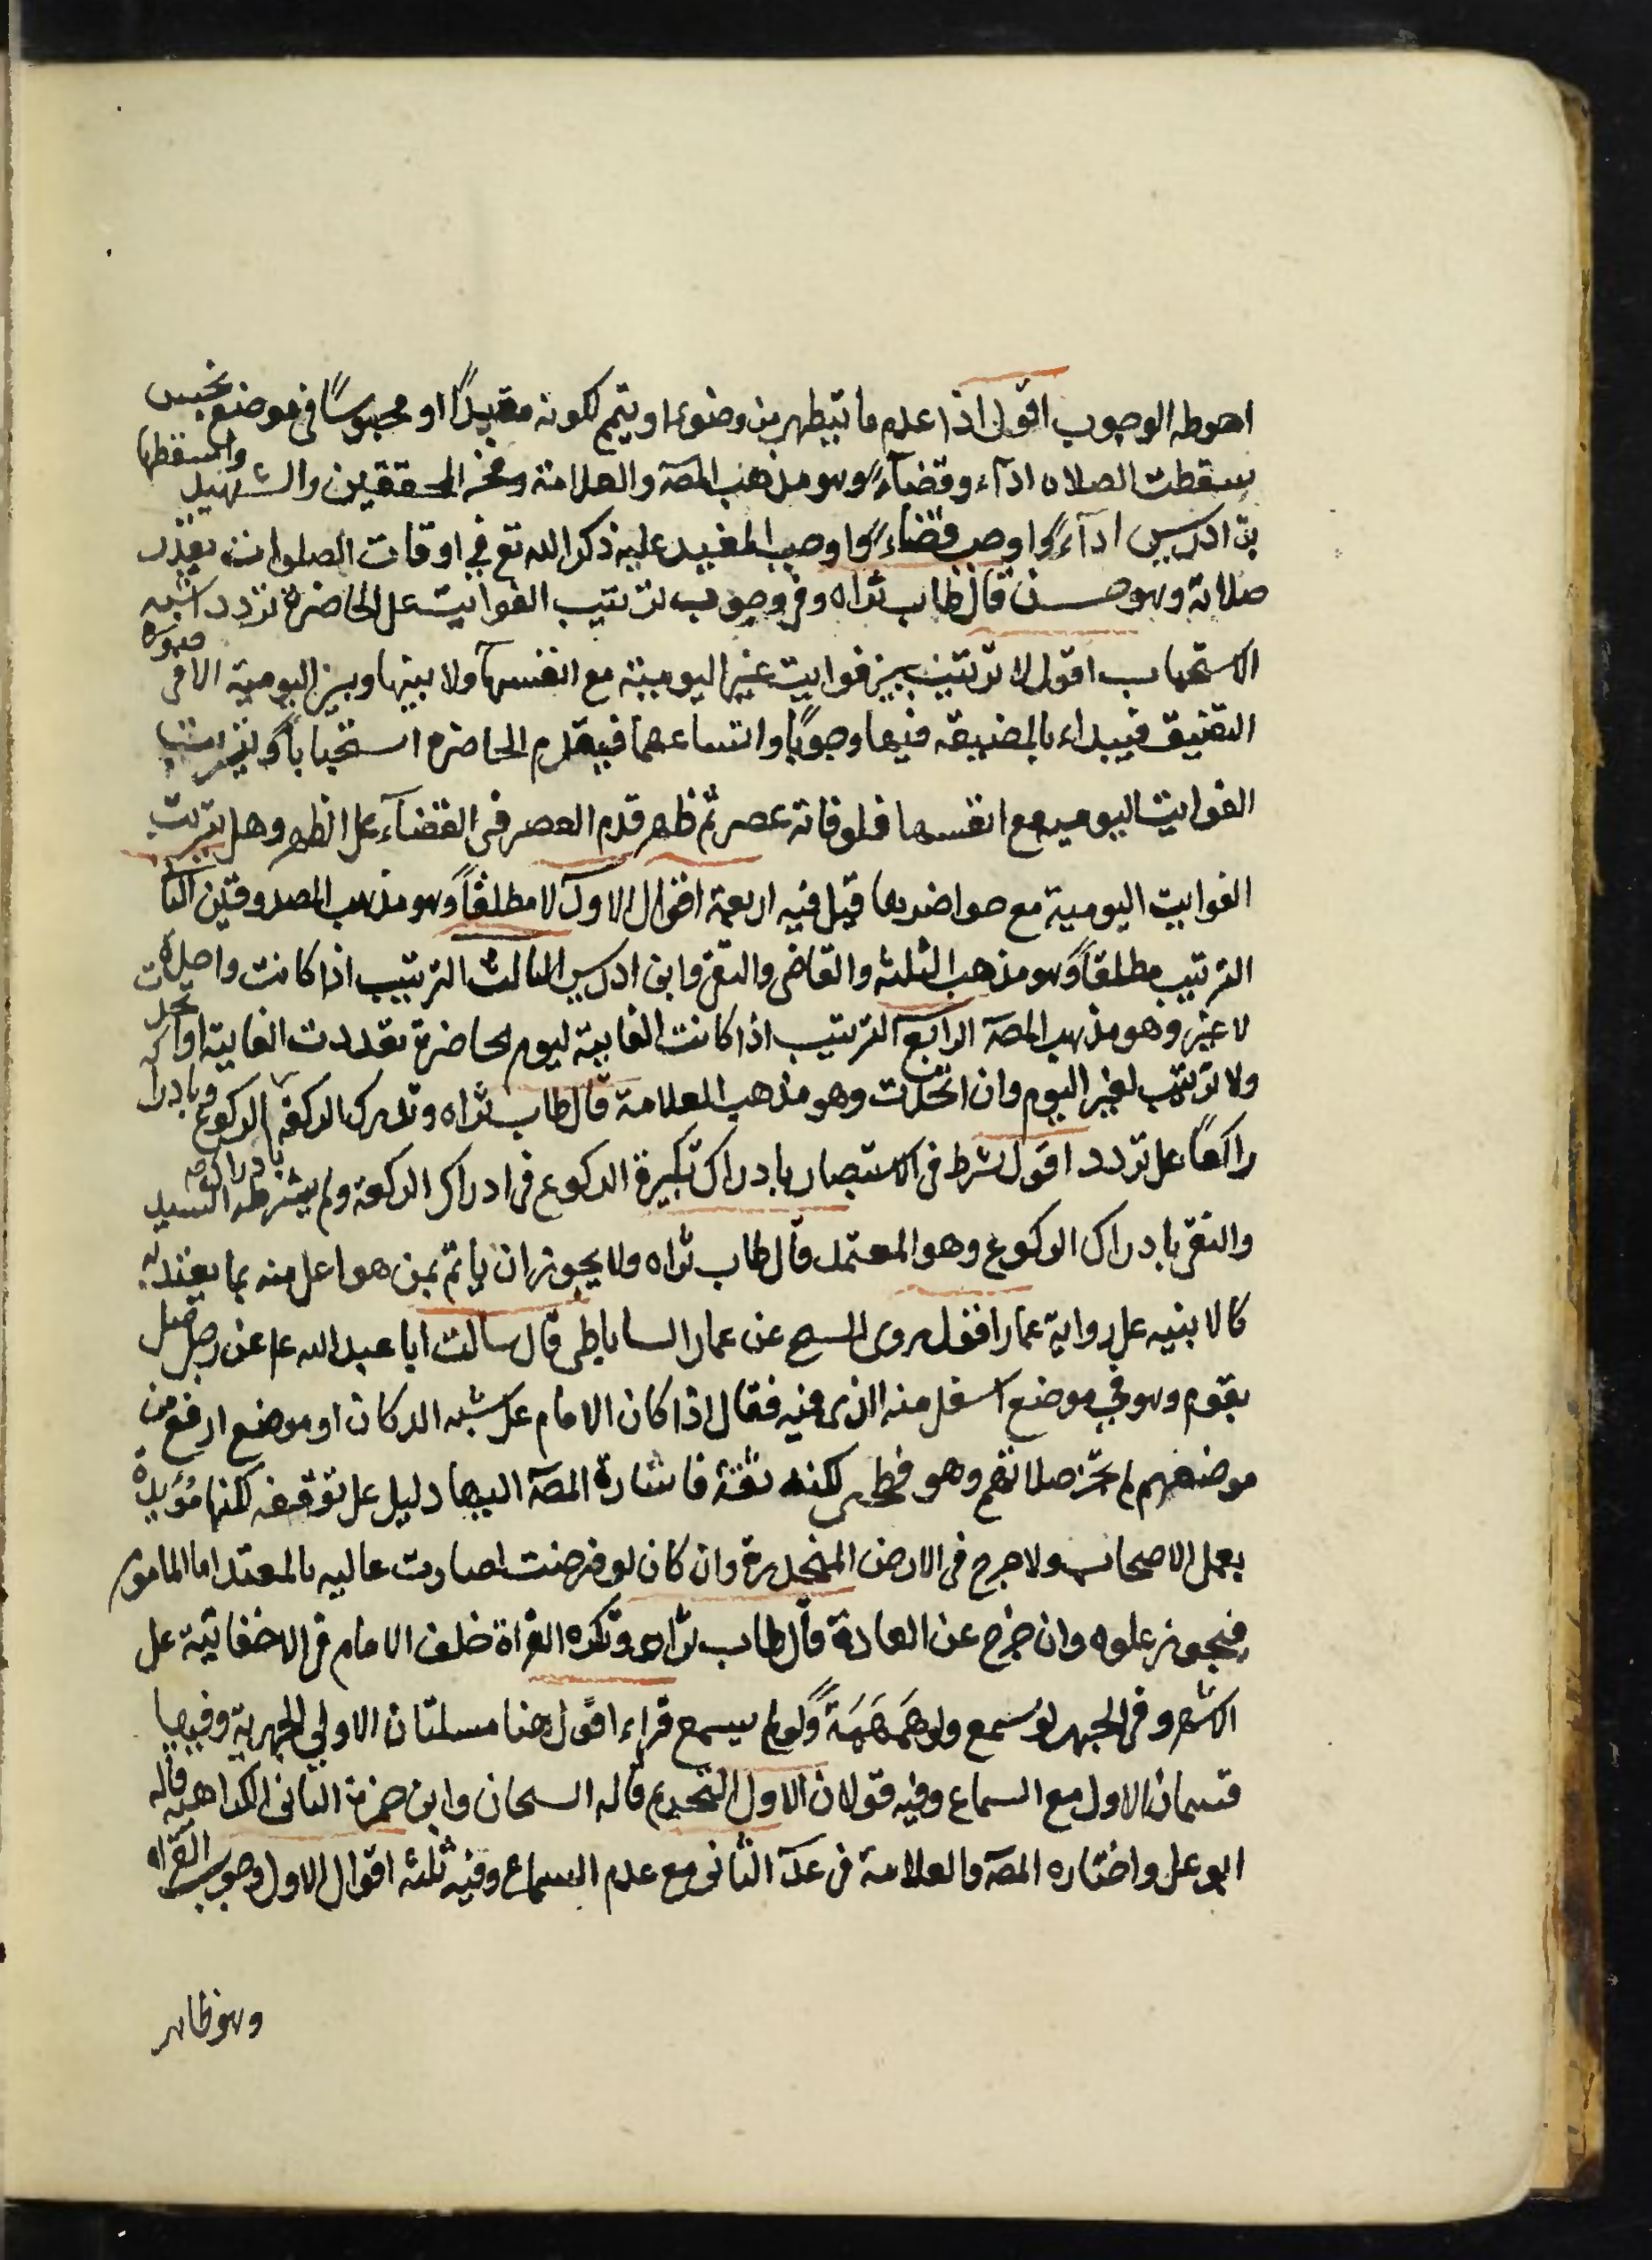 احوطه الوجوب اقول اذا عدم ما يتطهر من وضوء او يتيمم لكونه مقيدًا او محبوسًا فى موضع نجس
سقطت الصلاه اداء وقضآءً وهو مذهب المصَ والعلامة وفخر المحققين والشهيد واسقطها
بن ادريس اداءً واوجب قضاءً واوجب المفيد عليه ذكر الله تع فى اوقات الصلوات بقدر
صلاته وهو حسن قال طاب ثراه وفى وجوب ترتيب الفوايت على الحاضرة تردد اشبه
الاستحباب اقول لا ترتيب بين فوايت غير اليومية مع انفسها ولا بينها وبين اليومية الا فى صورة
التضيق فيبداء بالمضيقه منها وجوبًا واتساعهما فيقدم الحاضره استحبابًا ويترتب
الفوايت اليوميه مع انفسها فلو فاته عصر ثم ظهر قدم العصر فى القضآء على الظهر وهل يترتب
الفوايت اليومية مع حواضرها قيل فيه اربعة اقوال الاول لا مطلقًا وهو مذهب الصدوقين الثا
الترتيب مطلقًا وهو مذهب الثلثه والقاضى والتقى وابن ادريس الثالث الترتيب اذا كانت واحدة
لا غير وهو مذهب المصَ الرابع الترتيب اذا كانت الفايتة ليوم الحاضرة تعددت الفايتة او اتحدت
ولا ترتيب لغير اليوم وان اتحدت وهو مذهب العلامة قال طاب ثراه وتدرك الركعة بادراك الركوع وبادراكه
راكعًا على تردد اقول شرط فى الاستبصار بادراك تكبيرة الركوع فى ادراك الركعة ولم يشترطه السيد
والتقى بادراك الركوع وهو المعتمد قال طاب ثراه ولا يجوز ان يأتم بمن هو اعلى منه بما يعتد به
كالابنيه على رواية عمار اقول روى الشيخ عن عمار الساباطى قال سالت ابا عبد الله ع عن رجل صلى
بقوم وهو فى موضع اسفل منه الذى فيه فقال اذا كان الامام على شبه الدكان او موضع ارفع من
موضعهم لم تجز صلاتهم وهو فطحى لكنه ثقة فاشارة المصَ اليها دليل على توقفه لكنها مُؤيدة
بعمل الاصحاب ولا حرج فى الارض المنحدرة وان كان لو فرضت لصارت عاليه بالمعتد اما الماموم
فيجوز علوه وان خرج عن العادة قال طاب ثراه وتكره القراة خلف الامام فى الاخفاتية على
الاشهر وفى الجهر لو سمع ولو هَمهَمَةً ولو لم يسمع قراء اقول هنا مسلتان الاولى الجهرية وفيها
قسمان الاول مع السماع وفيه قولان الاول التحريم قاله الشيخان وابن حمزة الثانى الكراهية قاله
ابو على واختاره المصَ والعلامة فى عدَ الثانى مع عدم السماع وفيه ثلثه اقوال الاول وجوب القراه
وهو ظاهر